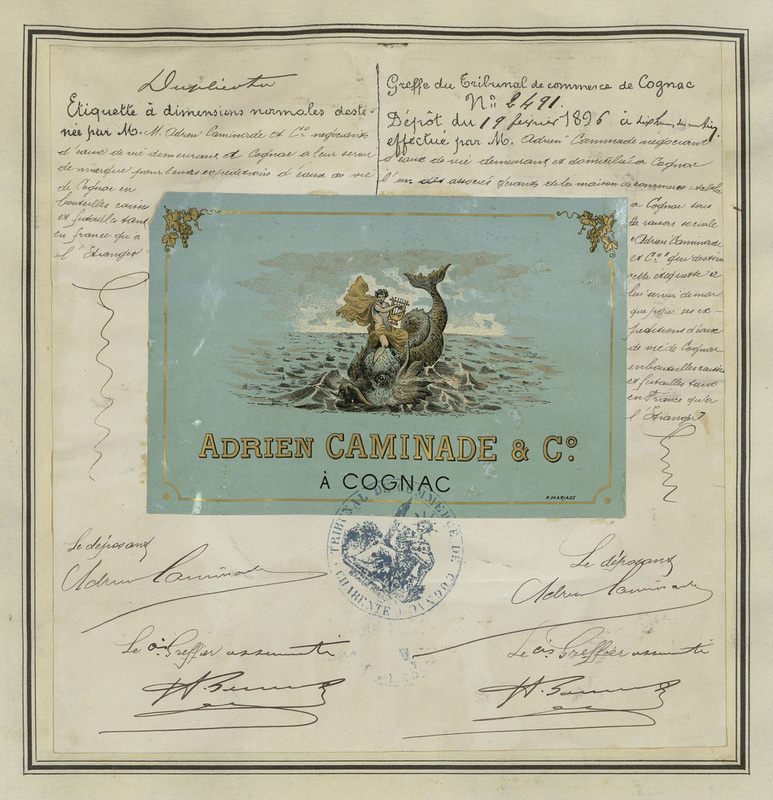 Duplicata
Etiquette à dimensions normales desti-
née par M. M. Adrien Caminade et Cie négociants
d'eaux de vie demeurant à Cognac a leur servir
de marque pour leurs expéditions d'eaux de vie
de Cognac en
bouteilles caisses
et futailles tant
en france qu'à
l'Etranger
Greffe du Tribunal de commerce de Cognac
No 2491.
Dépôt du 19 février 1896 à
effectué par M. Adrien Caminade négociant
d'eaux de vie demeurant et domicilié a Cognac
l'un des associés gérants de la maison de commerce établie
a Cognac sous
la raison sociale
"Adrien Caminade
et Cie" qui destine
cette etiquette a
lui servir de mar
que pour ses ex-
peditions d'eaux
de vie de Cognac
en bouteilles caisses
et futailles tant
en France qu'a
l'Etranger
ADRIEN CAMINADE & Co.
À COGNAC
R. MARIAGE
TRIBUNAL DE COMMERCE DE COGNAC
CHARENTE
Le déposant
Adrien Caminade
Le déposant
Adrien Caminade
Le cis Greffier assermenté
Le cis Greffier assermenté